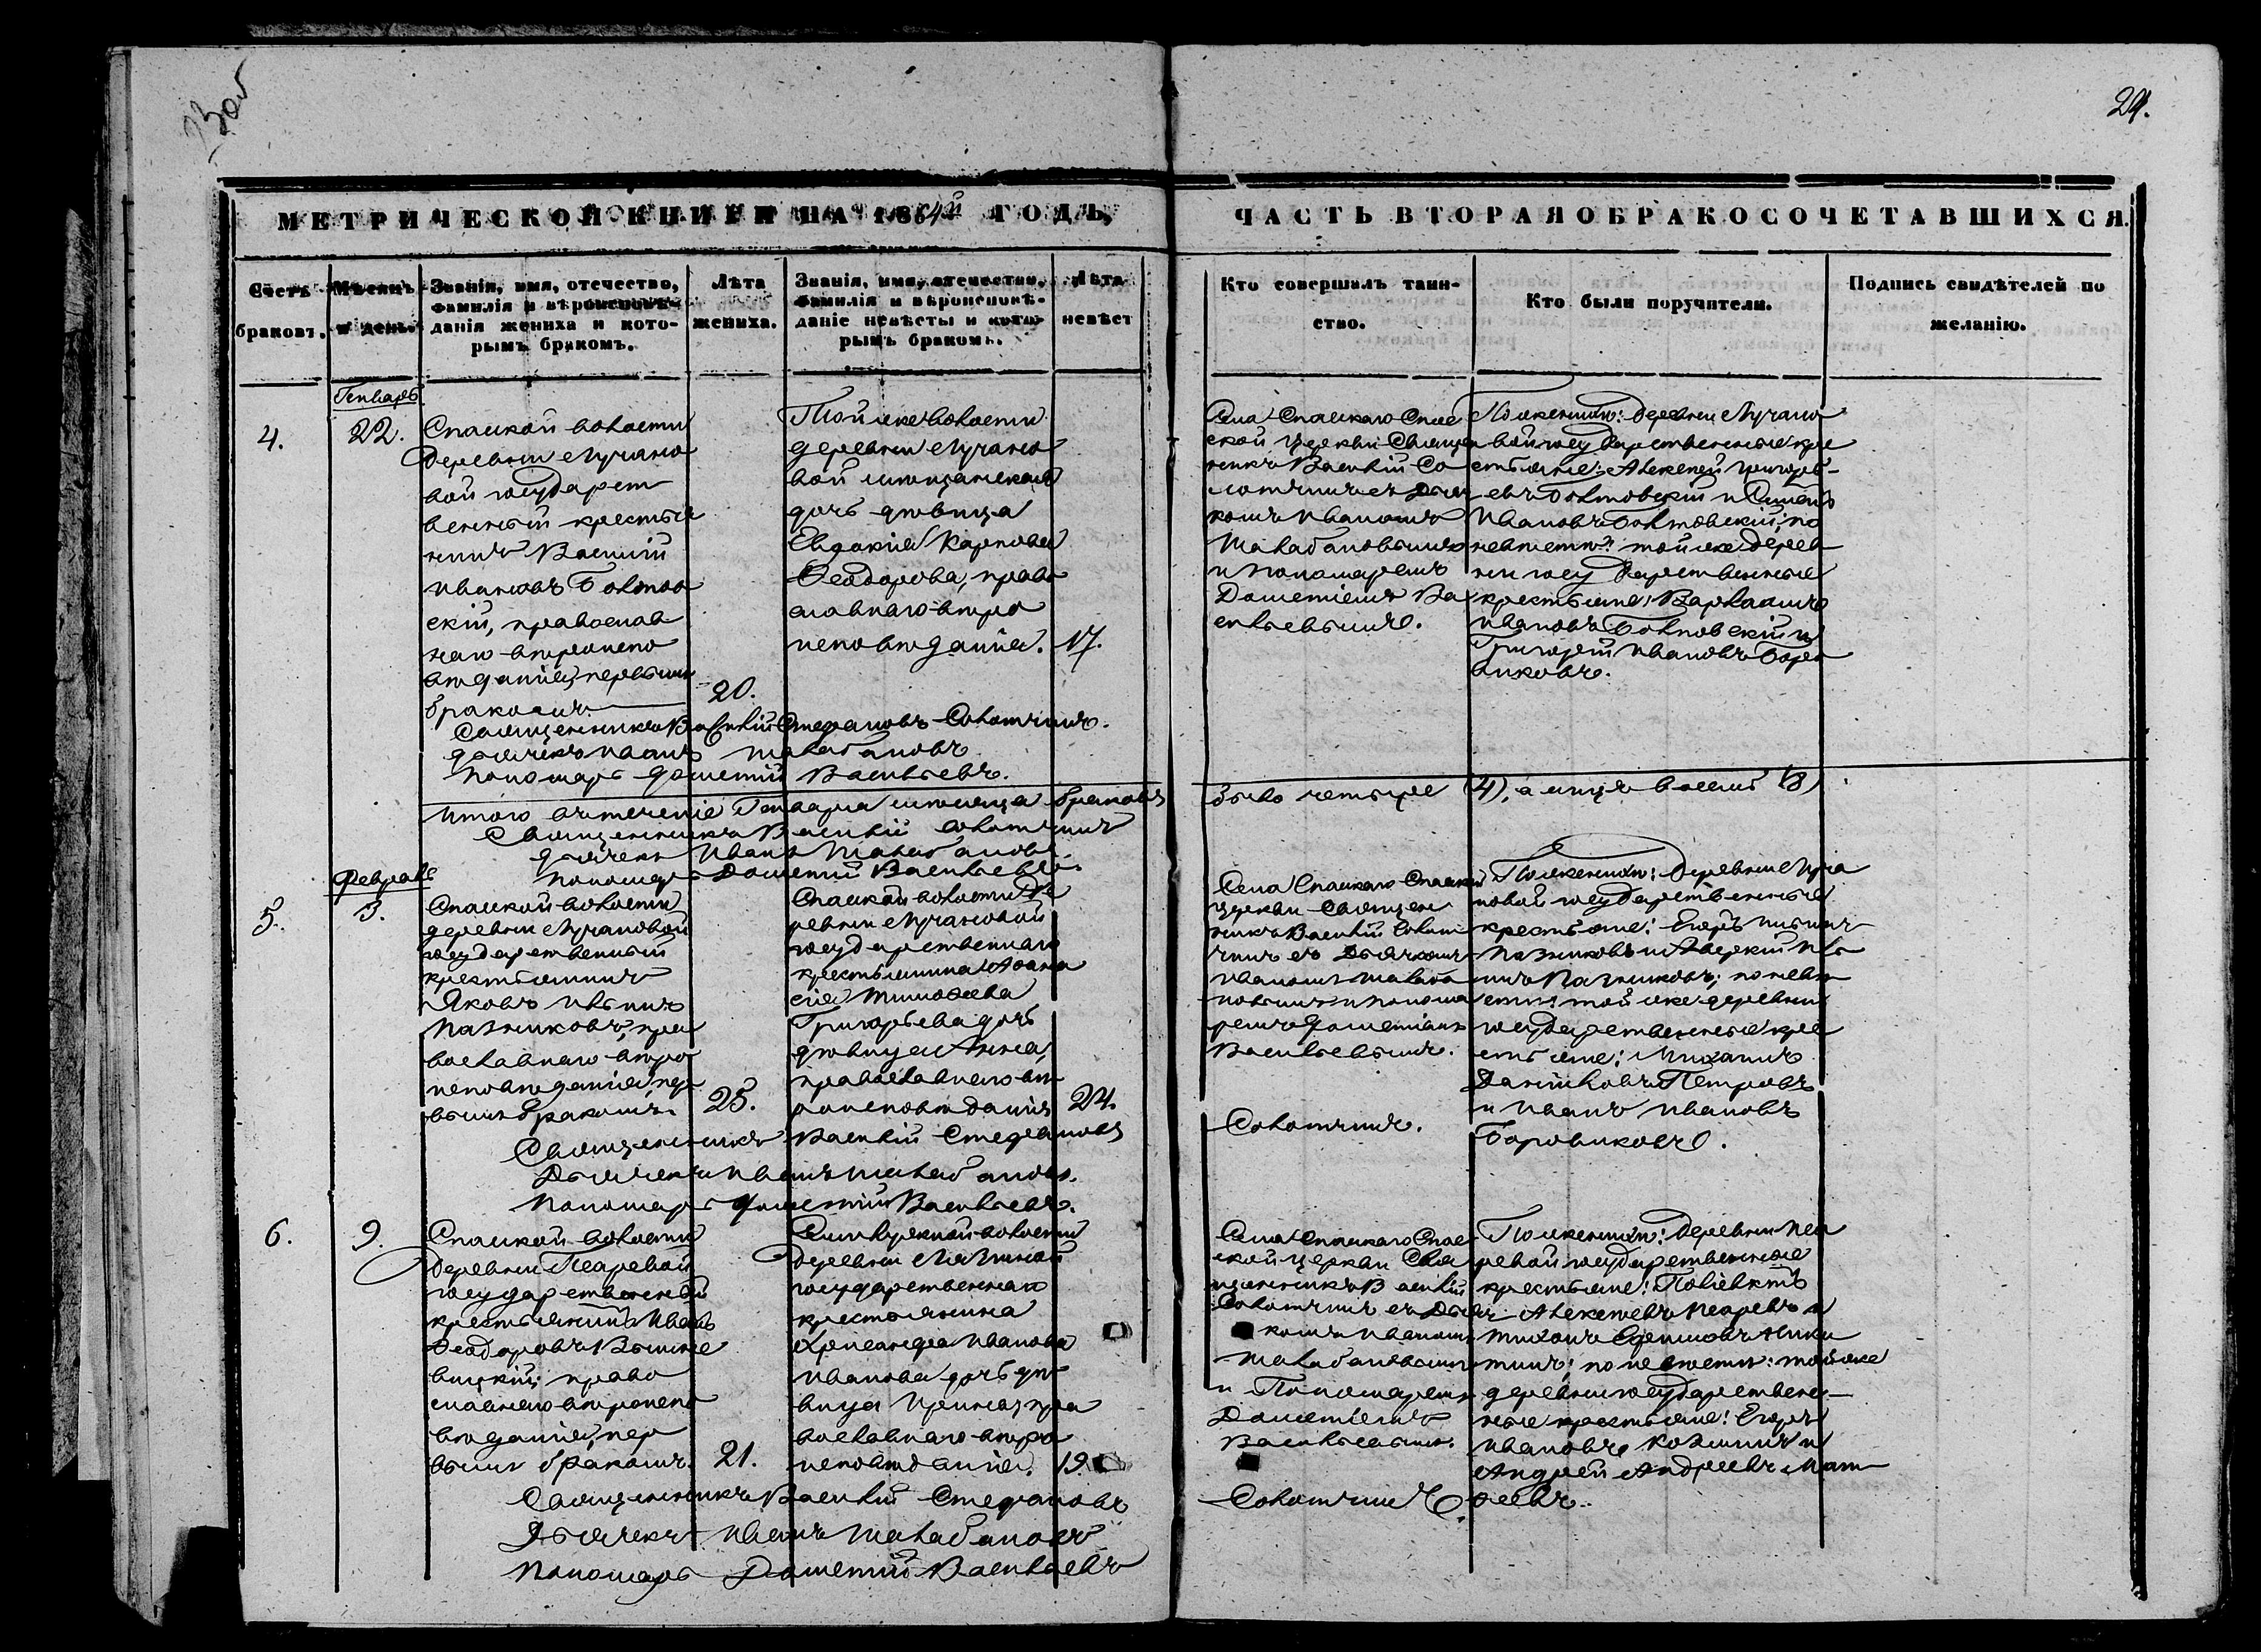 29.
МЕТРИЧЕСКОЙ КНИГИ НА 1864й ГОДЪ,
ЧАСТЬ ВТОРАЯ О БРАКОСОЧЕТАВШИХСЯ.
Счетъ браковъ.
Мѣсяцъ и день.
Званія, имя, отечество,
фамилія и вѣроисповѣ-
данія жениха и кото-
рымъ бракомъ.
Лѣта
жениха.
Званія, имя, отечество,
фамилія и вѣроисповѣ-
даніе невѣсты и кото-
рымъ бракомъ.
Лѣта
невѣст
Кто совершалъ таин-
ство.
Кто были поручители.
Подпись свидѣтелей по
желанію.
Генварь
4.
22.
Спаской волости
деревни Лучано
вой государст
венный крестья
нинъ Василій
Ивановъ Болтов
скій, православ
наго вѣроиспо
вѣданія, первымъ
бракомъ.
20.
Тойже волости
деревни Лучано
вой
дочь дѣвица
Евдокія Карпова
Ѳеодорова, право
славнаго вѣро
исповѣданія.
17.
Села Спаскаго Спас
ской церкви Священ
никъ Василій Со
лотчинъ съ Дьяч
комъ Иваномъ
Малабановымъ
и пономаремъ
Дометіемъ Ва
сильевымъ.
По женихѣ: деревни Лучано
вой государственные кре
стьяне: Алексей Григорь-
евъ Болтовскій и
Ивановъ Болтовскій; по
невѣстѣ: той же дерев
ни государственные
крестьяне: Варлаамъ
Ивановъ Болтовскій и
Григорій Ивановъ Боро
виковъ.
Священникъ Василій Стефановъ Солотчинъ.
дьячекъ Иванъ Малабановъ
пономарь Дометій Васильевъ.
Итого въ теченіе Генваря мѣсяца браковъ
было четыре (4), а лицъ восемь (8)
Священникъ Василій Солотчинъ
дьячекъ Иванъ Малабановъ
пономарь Дометій Васильевъ.
Февраль
5.
3.
Спаской волости
деревни Лучановой
государственный
крестьянинъ
Яковъ Ильинъ
Пазниковъ, пра
вославнаго вѣро
исповѣданія, пер
вымъ бракомъ.
25.
Спаской волости де
ревни Лучановой
государственнаго
крестьянина Аѳана
сія Тимоѳеева
Григорьева дочь
дѣвица Анна,
православнаго вѣ
роисповѣданія
24.
Села Спаскаго Спаской
церкви Священ
никъ Василій Солот
чинъ съ Дьячкомъ
Иваномъ Малаба
новымъ и понома
ремъ Дометіемъ
Васильевымъ.
По женихѣ: Деревни Луча
новой государственные
крестьяне: Егоръ Ильинъ
Пазниковъ и Аверкій Иль
инъ Пазниковъ; по невѣ
стѣ: той же деревни
государственные кре
стьяне: Михаилъ
Даниловъ Петровъ
и Иванъ Ивановъ
Боровиковъ.
Священникъ Василій Стефановъ Солотчинъ.
Дьячекъ Иванъ Малабановъ.
Пономарь Дометій Васильевъ.
6.
9.
Спаской волости
деревни Псаревой
государственный
крестьянинъ Иванъ
Ѳеодоровъ Вышне
вицкій, право
славнаго вѣроиспо
вѣданія, пер
вымъ бракомъ.
21.
волости
деревни
государственнаго
крестьянина
Хрисанфа Иванова
Иванова дочь дѣ
вица Ирина, пра
вославнаго вѣро
исповѣданія.
19.
Села Спаскаго Спас
ской церкви Свя
щенникъ Василій
Солотчинъ съ Дьяч
комъ Иваномъ
Малабановымъ
и Пономаремъ
Дометіемъ
Васильевымъ.
По женихѣ: Деревни Пса
ревой государственные
крестьяне: Поліевктъ
Алексеевъ Псаревъ и
Тихонъ Ефимовъ Ники
тинъ; по невѣстѣ: той же
деревни государствен-
ные крестьяне: Егоръ
Ивановъ и
Андрей Андреевъ Мат
ѳеевъ.
Священникъ Василій Стефановъ Солотчинъ.
Дьячекъ Иванъ Малабановъ
Пономарь Дометій Васильевъ